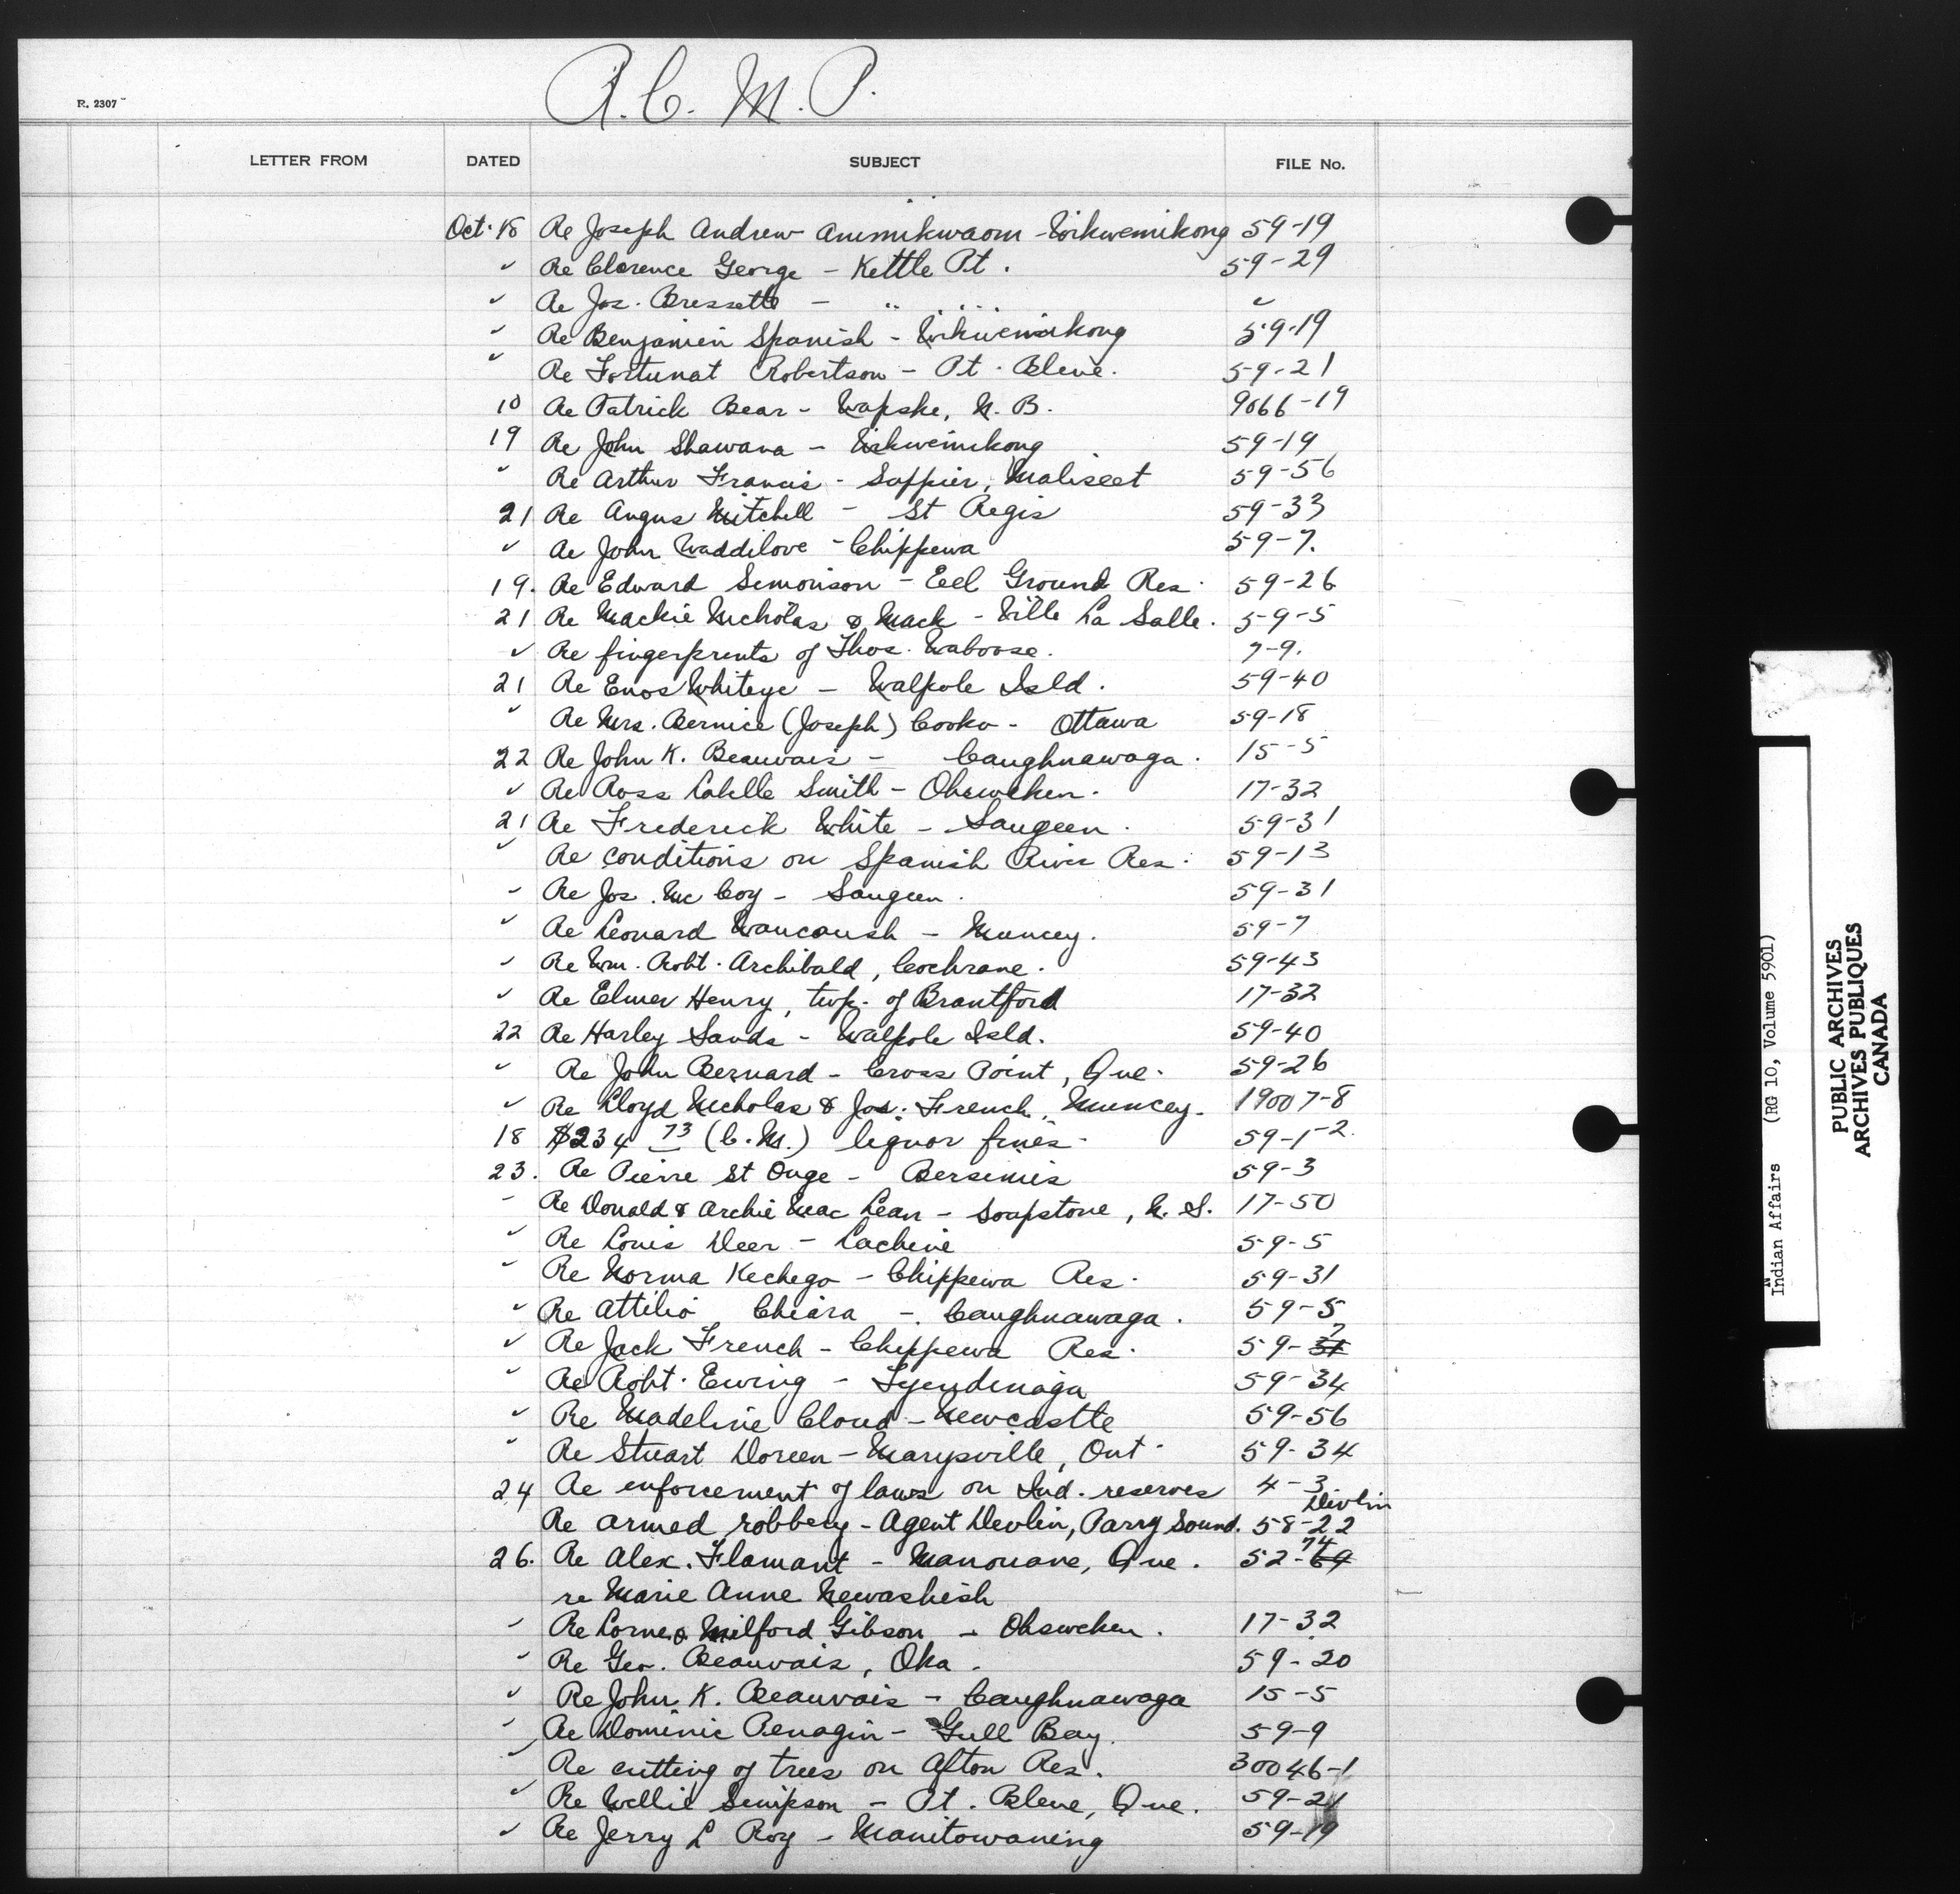 R. C. M. P.
R. 2307
LETTER FROM DATED SUBJECT FILE No.
Oct. 18 Re Joseph Andrew Animikwaom - Wikwemikong 59-19
" Re Clarence George - Kettle Pt. 59-29
" Re Jos. Bressette - " " "
" Re Benjamin Spanish - Wikwemikong 59-19
" Re Fortunat Robertson - Pt. Bleue. 59-21
10 Re Patrick Bear - Wapske, N. B. 9066-19
19 Re John Shawana - Wikwemikong 59-19
" Re Arthur Francis - Sappier, Maliseet 59-56
21 Re Angus Mitchell - St Regis 59-33
" Re John Waddilove - Chippewa 59-7.
19. Re Edward Simonson - Eel Ground Res. 59-26
21 Re Mackie Nicholas & Mack - Ville La Salle. 59-5
" Re fingerprints of Thos. Waboose. 7-9.
21 Re Enos Whiteye - Walpole Isld. 59-40
" Re Mrs. Bernice (Joseph) Cooko - Ottawa 59-18
22 Re John K. Beauvais - Caughnawaga. 15-5
" Re Ross Labelle Smith - Ohsweken. 17-32
21 Re Frederick White - Saugeen. 59-31
" Re conditions on Spanish River Res. 59-13
" Re Jos. Mc Coy - Saugeen. 59-31
" Re Leonard Waucaush - Muncey. 59-7
" Re Wm. Robt. Archibald, Cochrane. 59-43
" Re Elmer Henry, twp. of Brantford 17-32
22 Re Harley Sands - Walpole Isld. 59-40
" Re John Bernard - Cross Point, Que. 59-26
" Re Lloyd Nicholas & Jos. French, Muncey. 19007-8
18 $234 73 (C. M.) liquor fines. 59-1-2.
23. Re Pierre St Onge - Bersimis 59-3
" Re Donald & Archie Mac Lean - Soapstone, N. S. 17-50
" Re Louis Deer - Lachine 59-5
" Re Norma Kechego - Chippewa Res. 59-31
" Re Attilio Chiara - Caughnawaga. 59-5
" Re Jack French - Chippewa Res. 59-31 7
" Re Robt. Ewing - Tyendinaga 59-34
" Re Madeline Cloud - Newcastle 59-56
" Re Stuart Doreen - Marysville, Ont. 59-34
24 Re enforcement of laws on Ind. reserves 4-3
Divlin
Re armed robbery - Agent Devlin, Parry Sound. 58-22
26. Re Alex. Flamant - Manouane, Que. 52-69 74
re Marie Anne Newashish
" Re Lorne & Milford Gibson - Ohsweken. 17-32
" Re Geo. Beauvais, Oka. 59-20
" Re John K. Beauvais - Caughnawaga 15-5
" Re Dominic Penagin - Gull Bay. 59-9
" Re cutting of trees on Afton Res. 30046-1
" Re Wellie Simpson - Pt. Bleue, Que. 59-21
" Re Jerry L Roy - Manitowaning 59-19
Indian Affairs (RG 10, Volume 5901)
PUBLIC ARCHIVES
ARCHIVES PUBLIQUES
CANADA